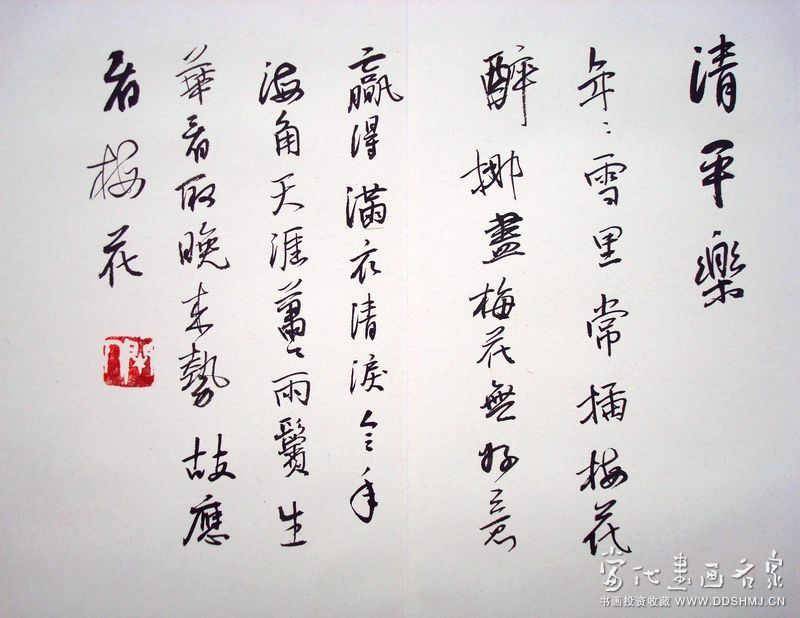 清平樂
年〻雪里常插梅花
醉挪盡梅花無好意
贏得滿衣清淚今年
海角天涯蕭〻兩鬢生
華看取晚来勢故應
看梅花
當代書画名家
书画投资收藏 WWW.DDSHMJ.CN